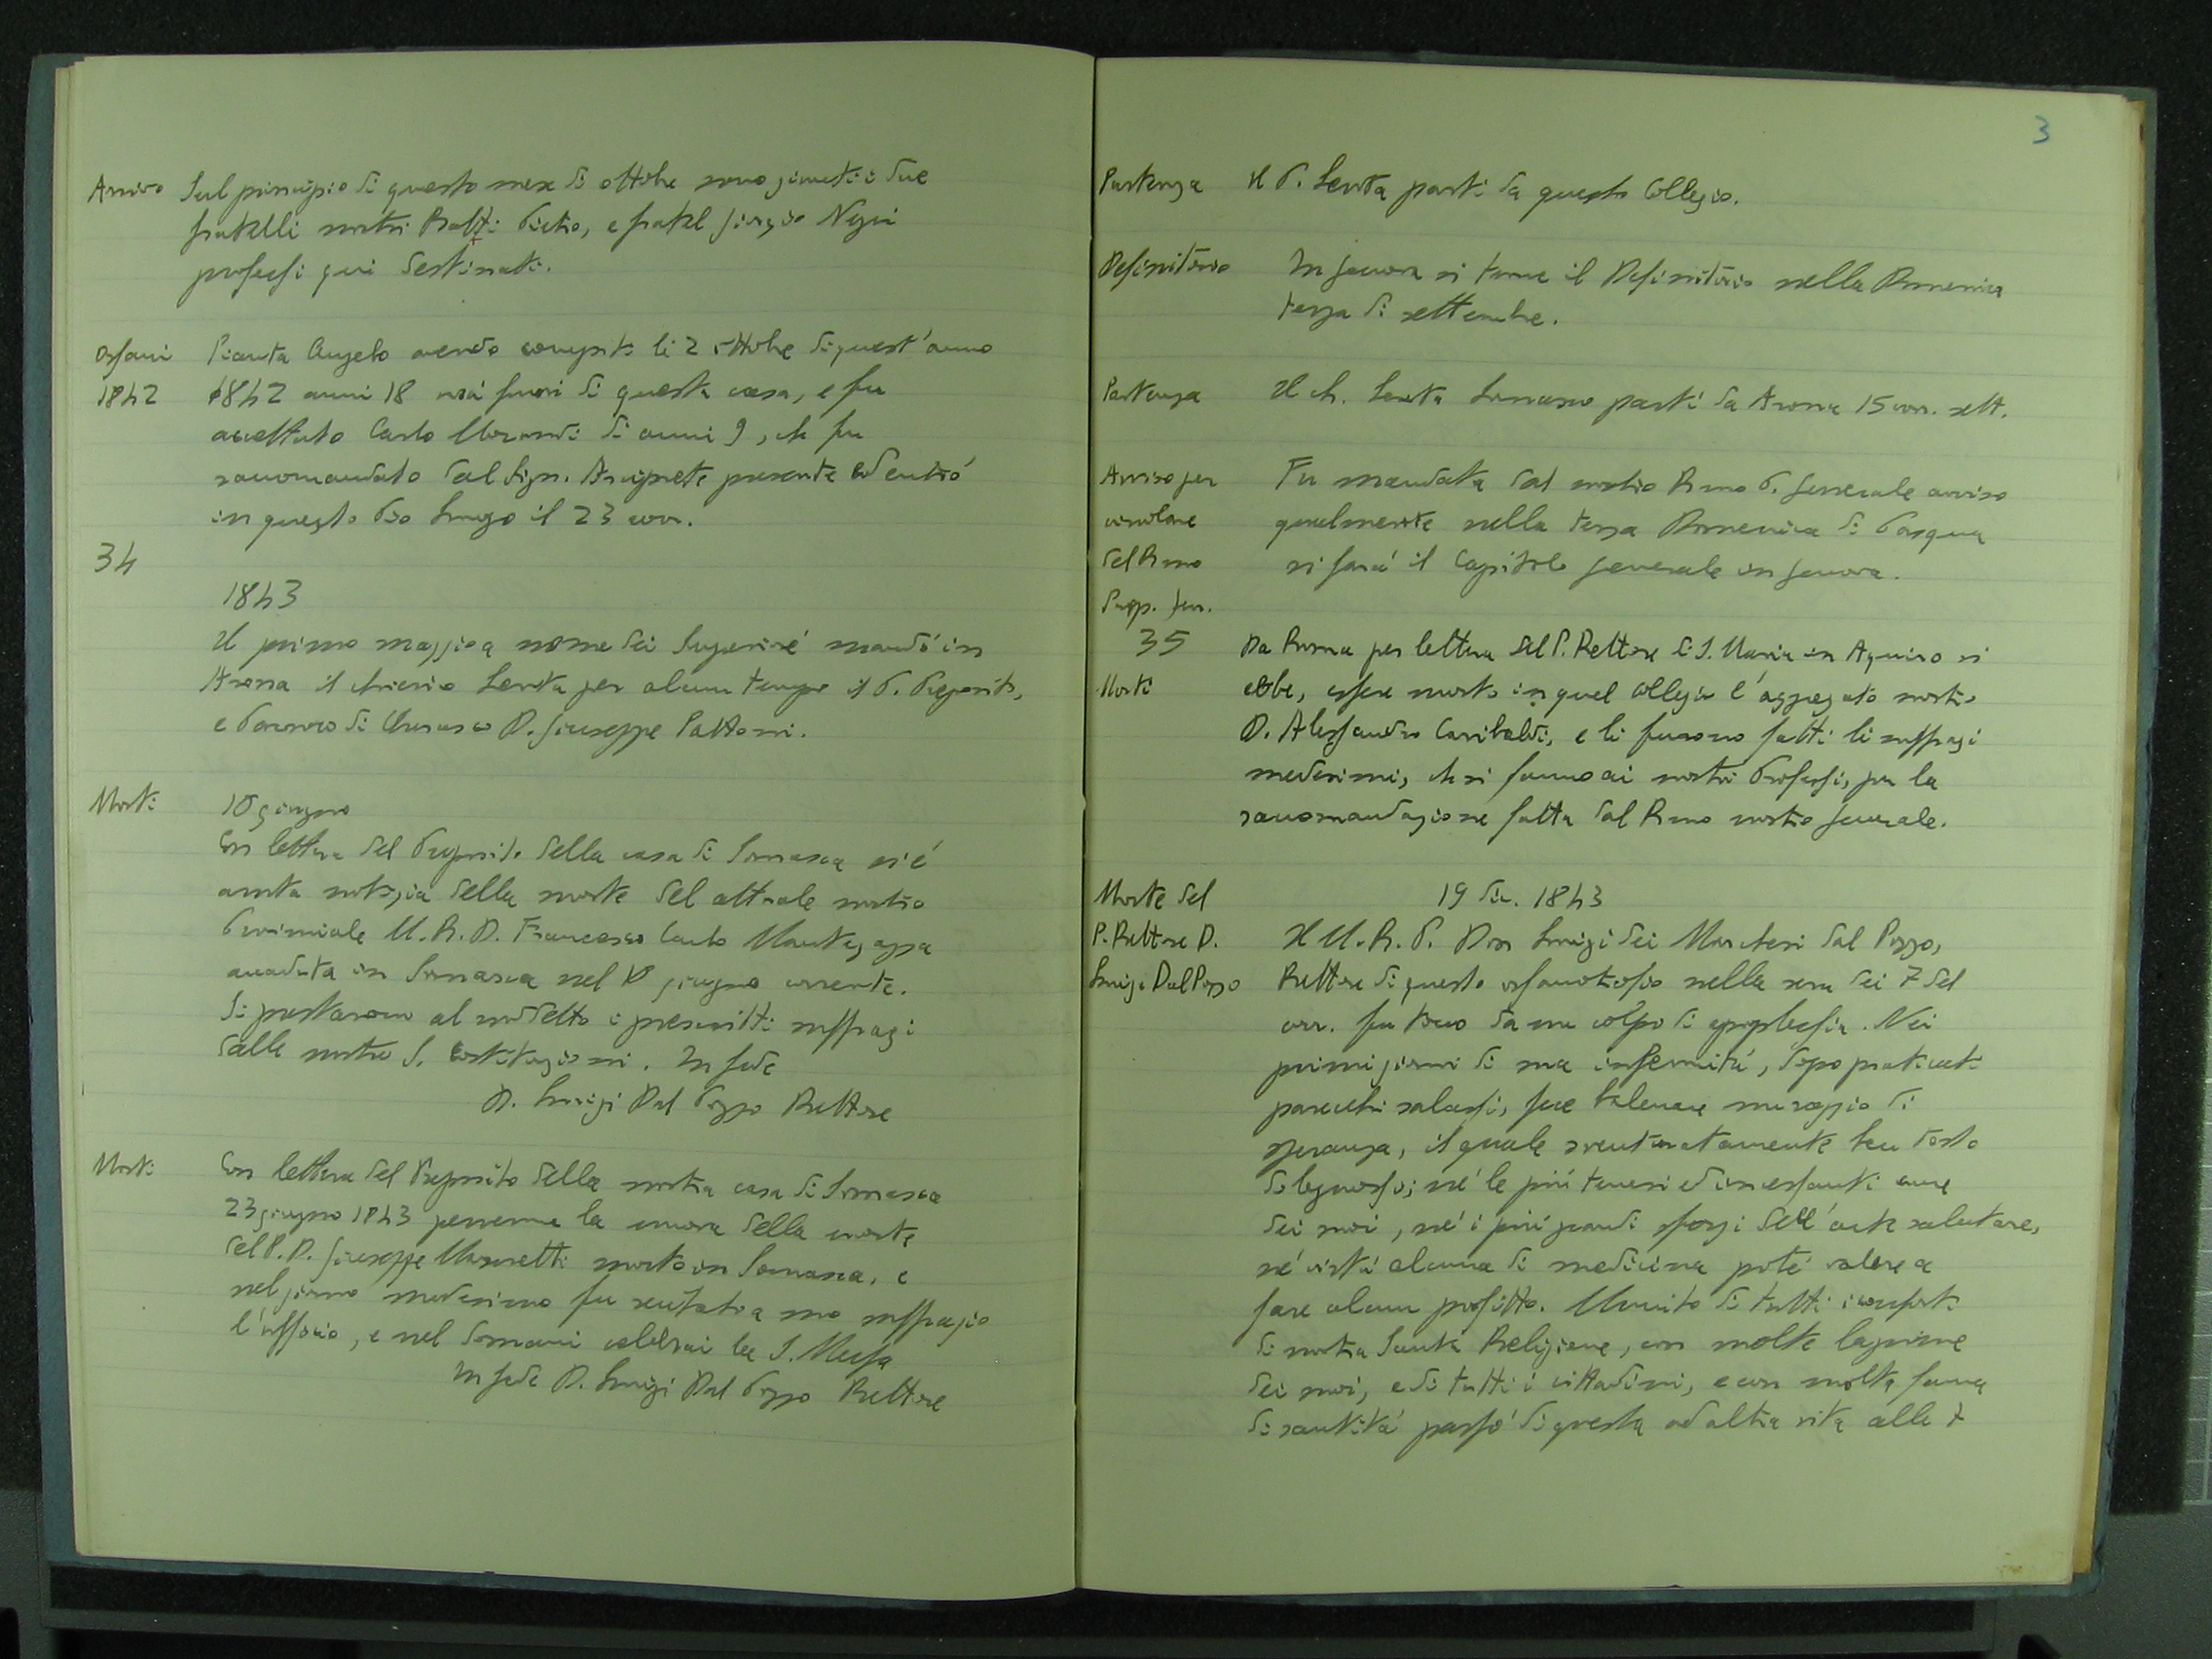 Arrivo Sul principio di questo mese di ottobre sono giunti i due
fratelli nostri Ratti Pietro, e fratel Giorgio Negri
professi qui destinati.
Orfani Pianta Angelo avendo compito li 2 ottobre di quest'anno
1842 1842 anni 18 uscì fuori di questa casa, e fu
accettato Carlo Morandi di anni 9, che fu
raccomandato dal Sign. Arciprete presente ed entrò
in questo Pio Luogo il 23 corr.
34
1843
Il primo maggio a nome dei Superiori mandò in
Arona il chierico Leveta per alcun tempo il P. Preposito,
e Parroco di Cherasco D. Giuseppe Pattoni.
Morti 10 giugno
Con lettera del Preposito della casa di Somasca si è
avuta notizia della morte del attuale nostro
Provinciale M. R. D. Francesco Carlo Mantegazza
accaduta in Somasca nel giugno corrente.
Si prestarono al suddetto i prescritti suffragi
dalle nostre S. Costituzioni. In fede
D. Luigi Dal Pozzo Rettore
Morti Con lettera del Preposito della nostra casa di Somasca
23 giugno 1843 pervenne la nuova della morte
del P. D. Giuseppe Maranetti morto in Somasca, e
nel giorno medesimo fu recitato a suo suffragio
l'ufficio, e nel domani celebrai la S. Messa
In fede D. Luigi Dal Pozzo Rettore
3
Partenza Il P. Leveta partì da questo Collegio.
Definitorio In Genova si tenne il Definitorio nella Domenica
terza di settembre.
Partenza Il ch. Leveta Somasco partì da Arona 15 corr. sett.
Avviso per Fu mandata dal nostro R.mo P. Generale avviso
circolare qualmente nella terza Domenica di Pasqua
del R.mo si farà il Capitolo generale in Genova.
Prep. Gen.
35 Da Roma per lettera del P. Rettore di S. Maria in Aquiro si
Morti ebbe, essere morto in quel collegio l'aggregato nostro
D. Alessandro Caribaldi, e li furono fatti li suffragi
medesimi, che si fanno ai nostri Professi, per la
raccomandazione fatta dal R.mo nostro Generale.
Morte del 19 dic. 1843
P. Rettore D. Il M. R. P. Don Luigi dei Marchesi dal Pozzo,
Luigi Dal Pozzo Rettore di questo orfanotrofio nella sera dei 7 del
corr. fu tocco da un colpo di apoplessia. Nei
primi giorni di sua infermità, dopo praticati
parecchi salassi, fece balenare un raggio di
speranza, il quale sventuratamente ben tosto
dileguossi; né le più tenere ed incessanti cure
dei suoi, né i più grandi sforzi dell'arte salutare,
né virtù alcuna di medicina poté valere a
fare alcun profitto. Munito di tutti i conforti
di nostra Santa Religione, con molte lagrime
dei suoi, e di tutti i cittadini, e con molta fama
di santità passò di questa ad altra vita alle 7